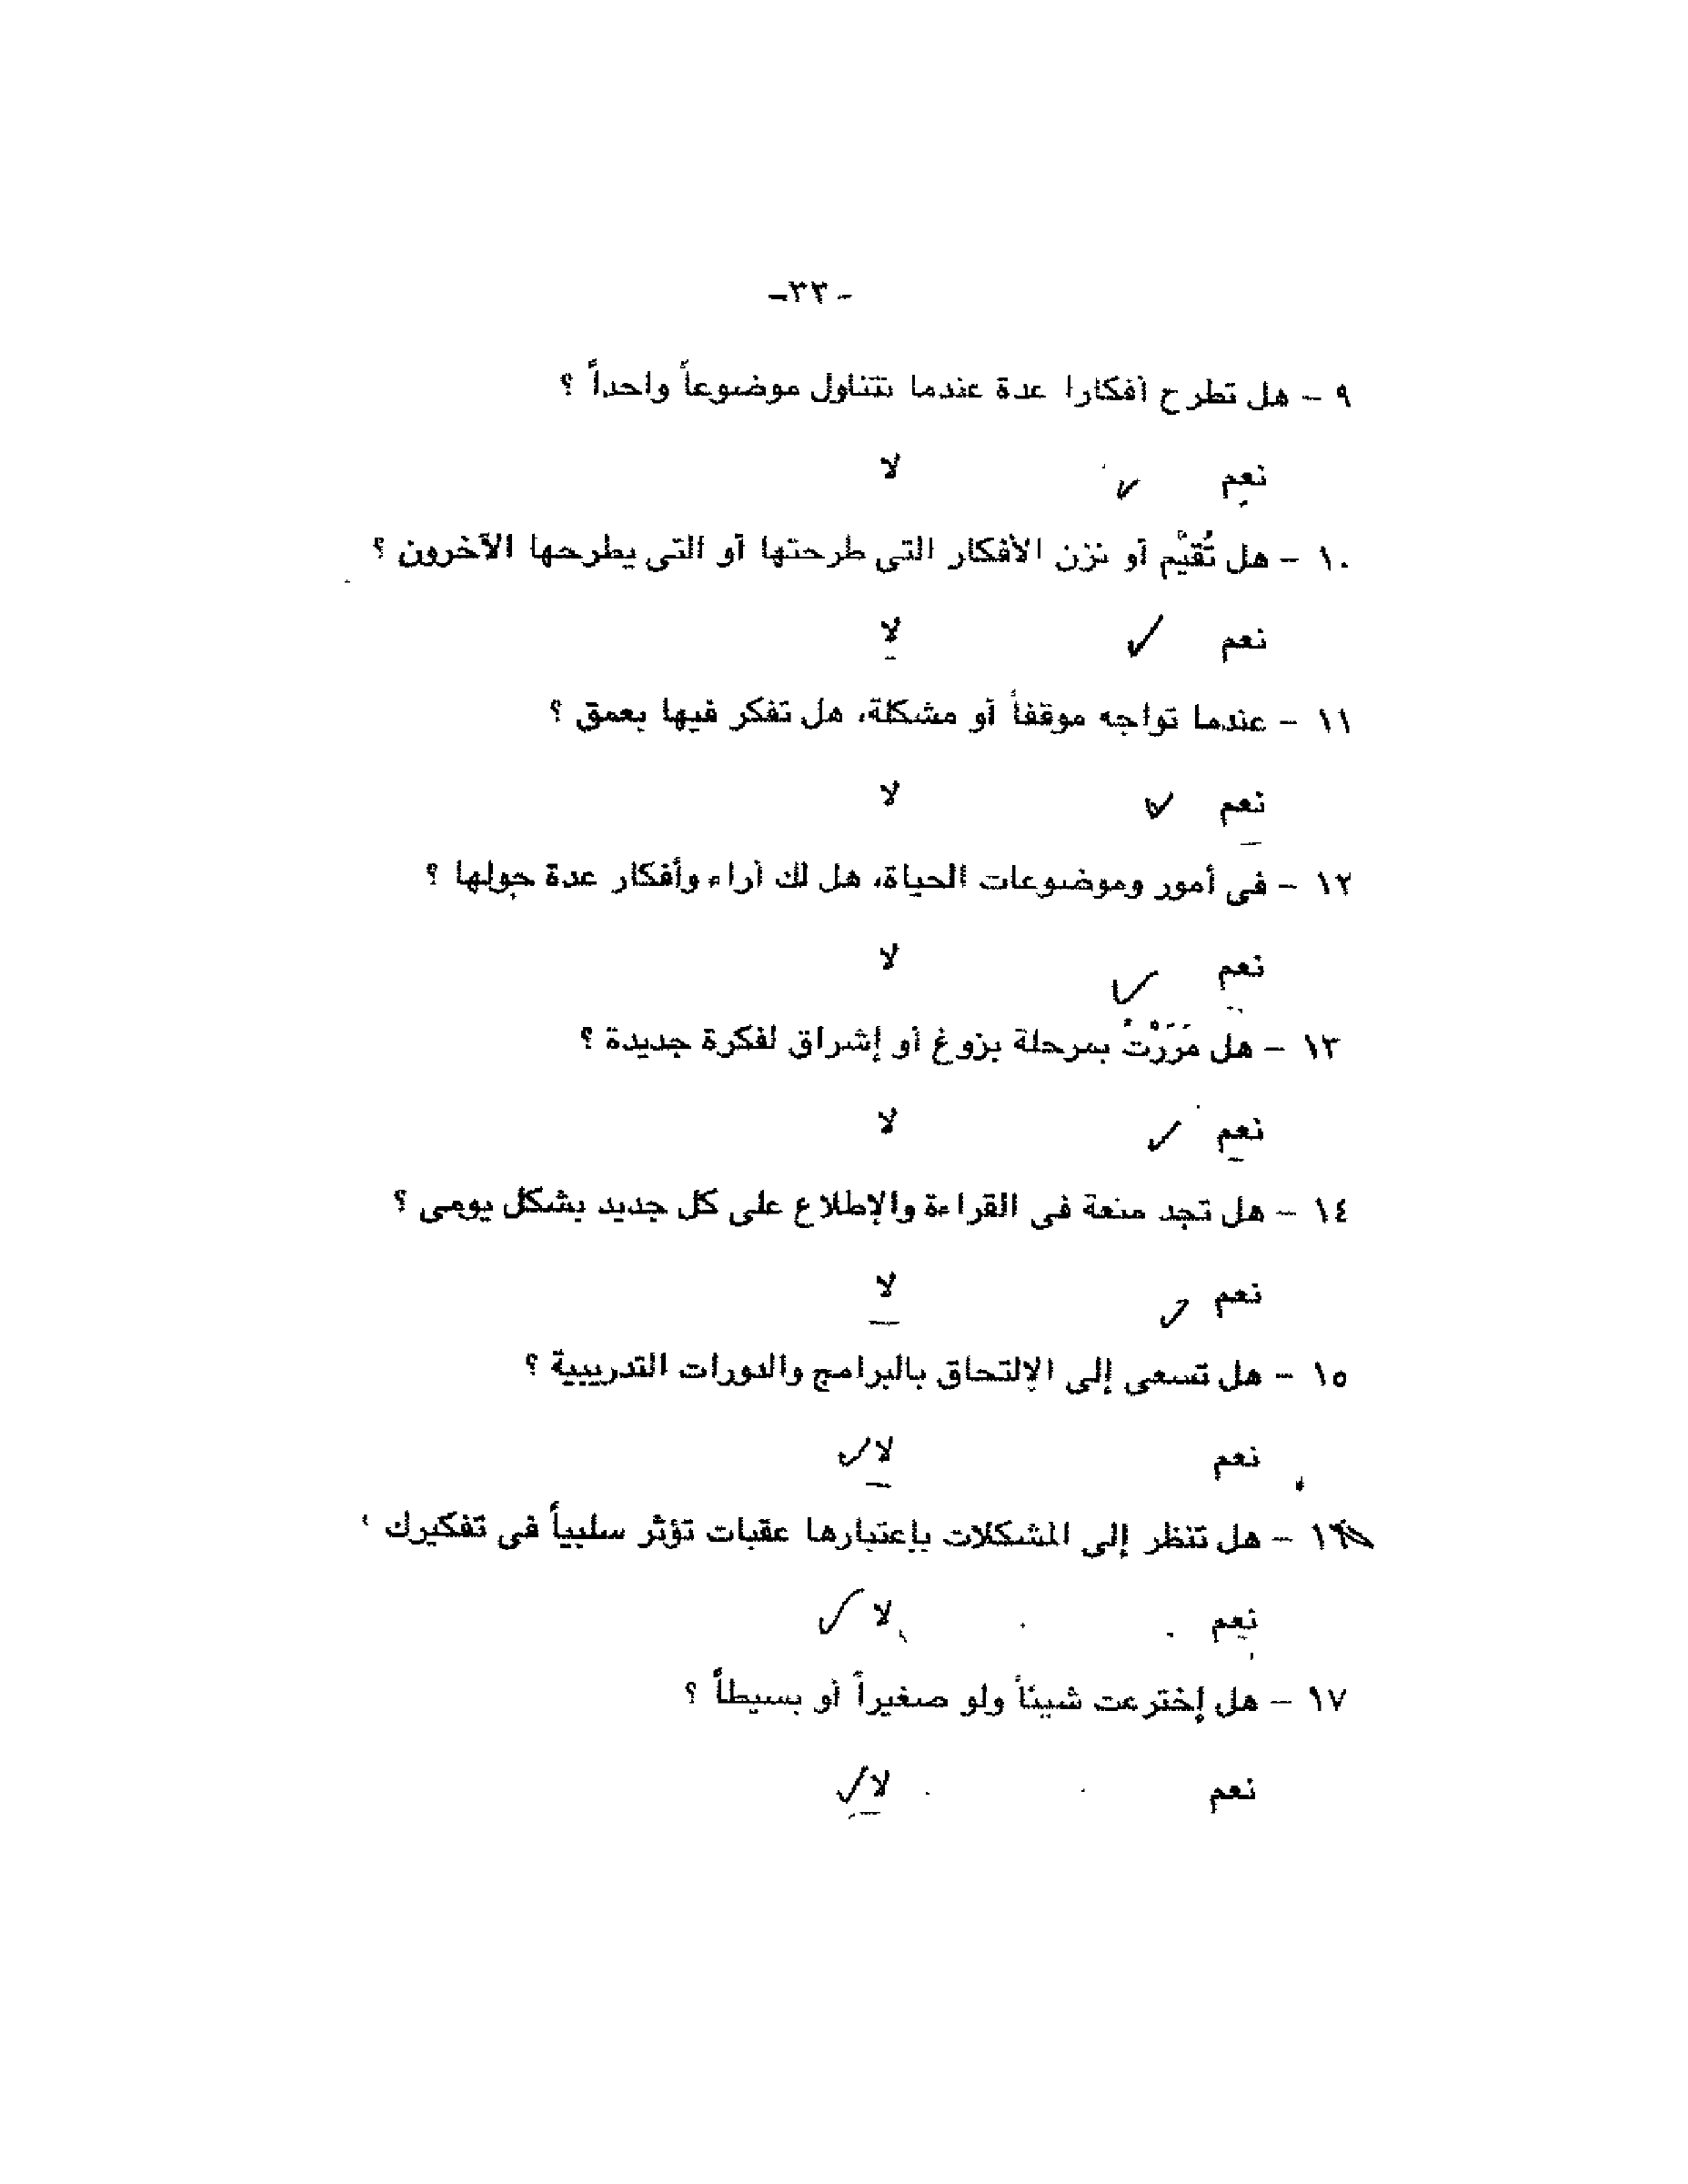 -٣٣-
٩ - هل تطرح أفكارا عدة عندما تتناول موضوعاً واحداً ؟
نعم ✓ لا
١٠ - هل تُقيِّم أو تزن الأفكار التى طرحتها أو التى يطرحها الآخرون ؟
نعم ✓ لا
١١ - عندما تواجه موقفاً أو مشكلة، هل تفكر فيها بعمق ؟
نعم ✓ لا
١٢ - فى أمور وموضوعات الحياة، هل لك آراء وأفكار عدة حولها ؟
نعم ✓ لا
١٣ - هل مَرَرْتُ بمرحلة بزوغ أو إشراق لفكرة جديدة ؟
نعم ✓ لا
١٤ - هل تجد متعة فى القراءة والإطلاع على كل جديد بشكل يومى ؟
نعم ✓ لا
١٥ - هل تسعى إلى الإلتحاق بالبرامج والدورات التدريبية ؟
نعم لا ✓
١٦ - هل تنظر إلى المشكلات بإعتبارها عقبات تؤثر سلبياً فى تفكيرك
نعم لا ✓
١٧ - هل إخترعت شيئاً ولو صغيراً أو بسيطاً ؟
نعم لا ✓